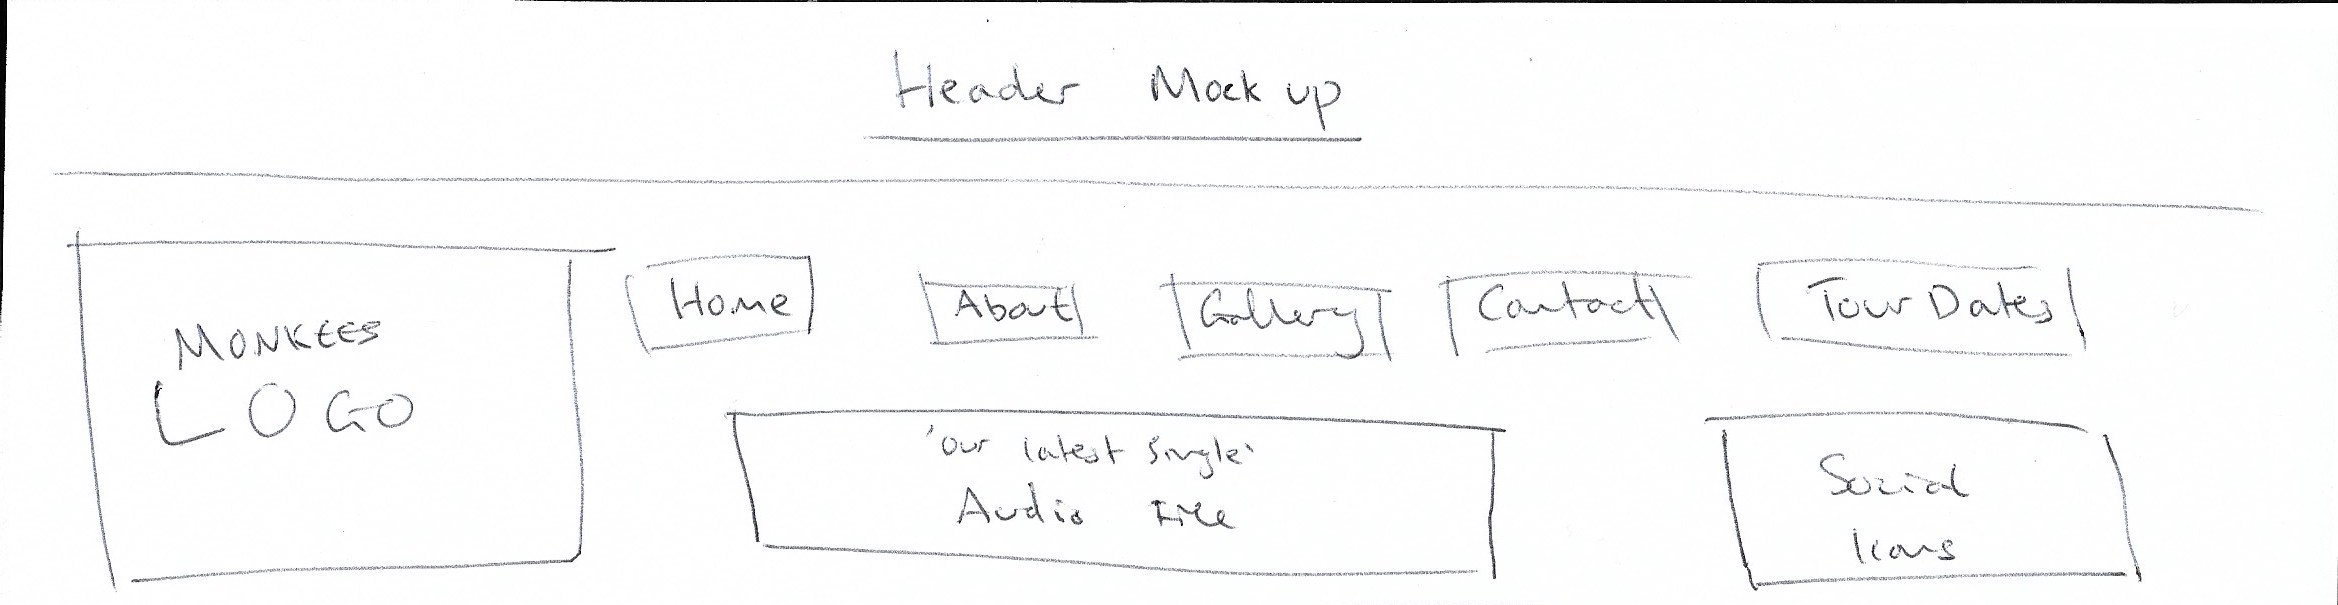 Header Mock up
MONKEES
LOGO
Home
About
Gallery
Contact
Tour Dates
'our latest single'
Audio File
Social
Icons